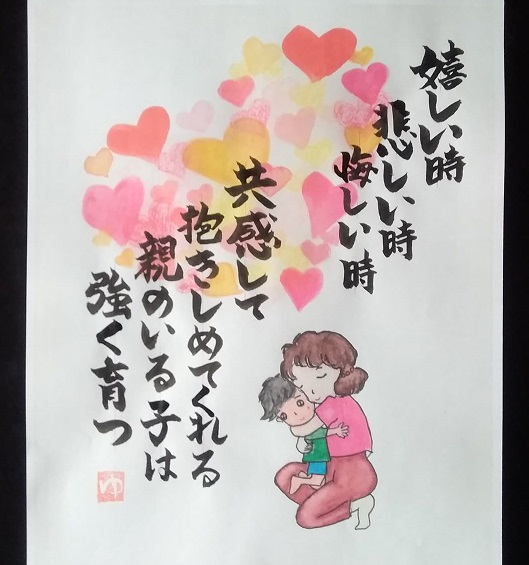 嬉しい時
悲しい時
悔しい時
共感して
抱きしめてくれる
親のいる子は
強く育つ
ゆ